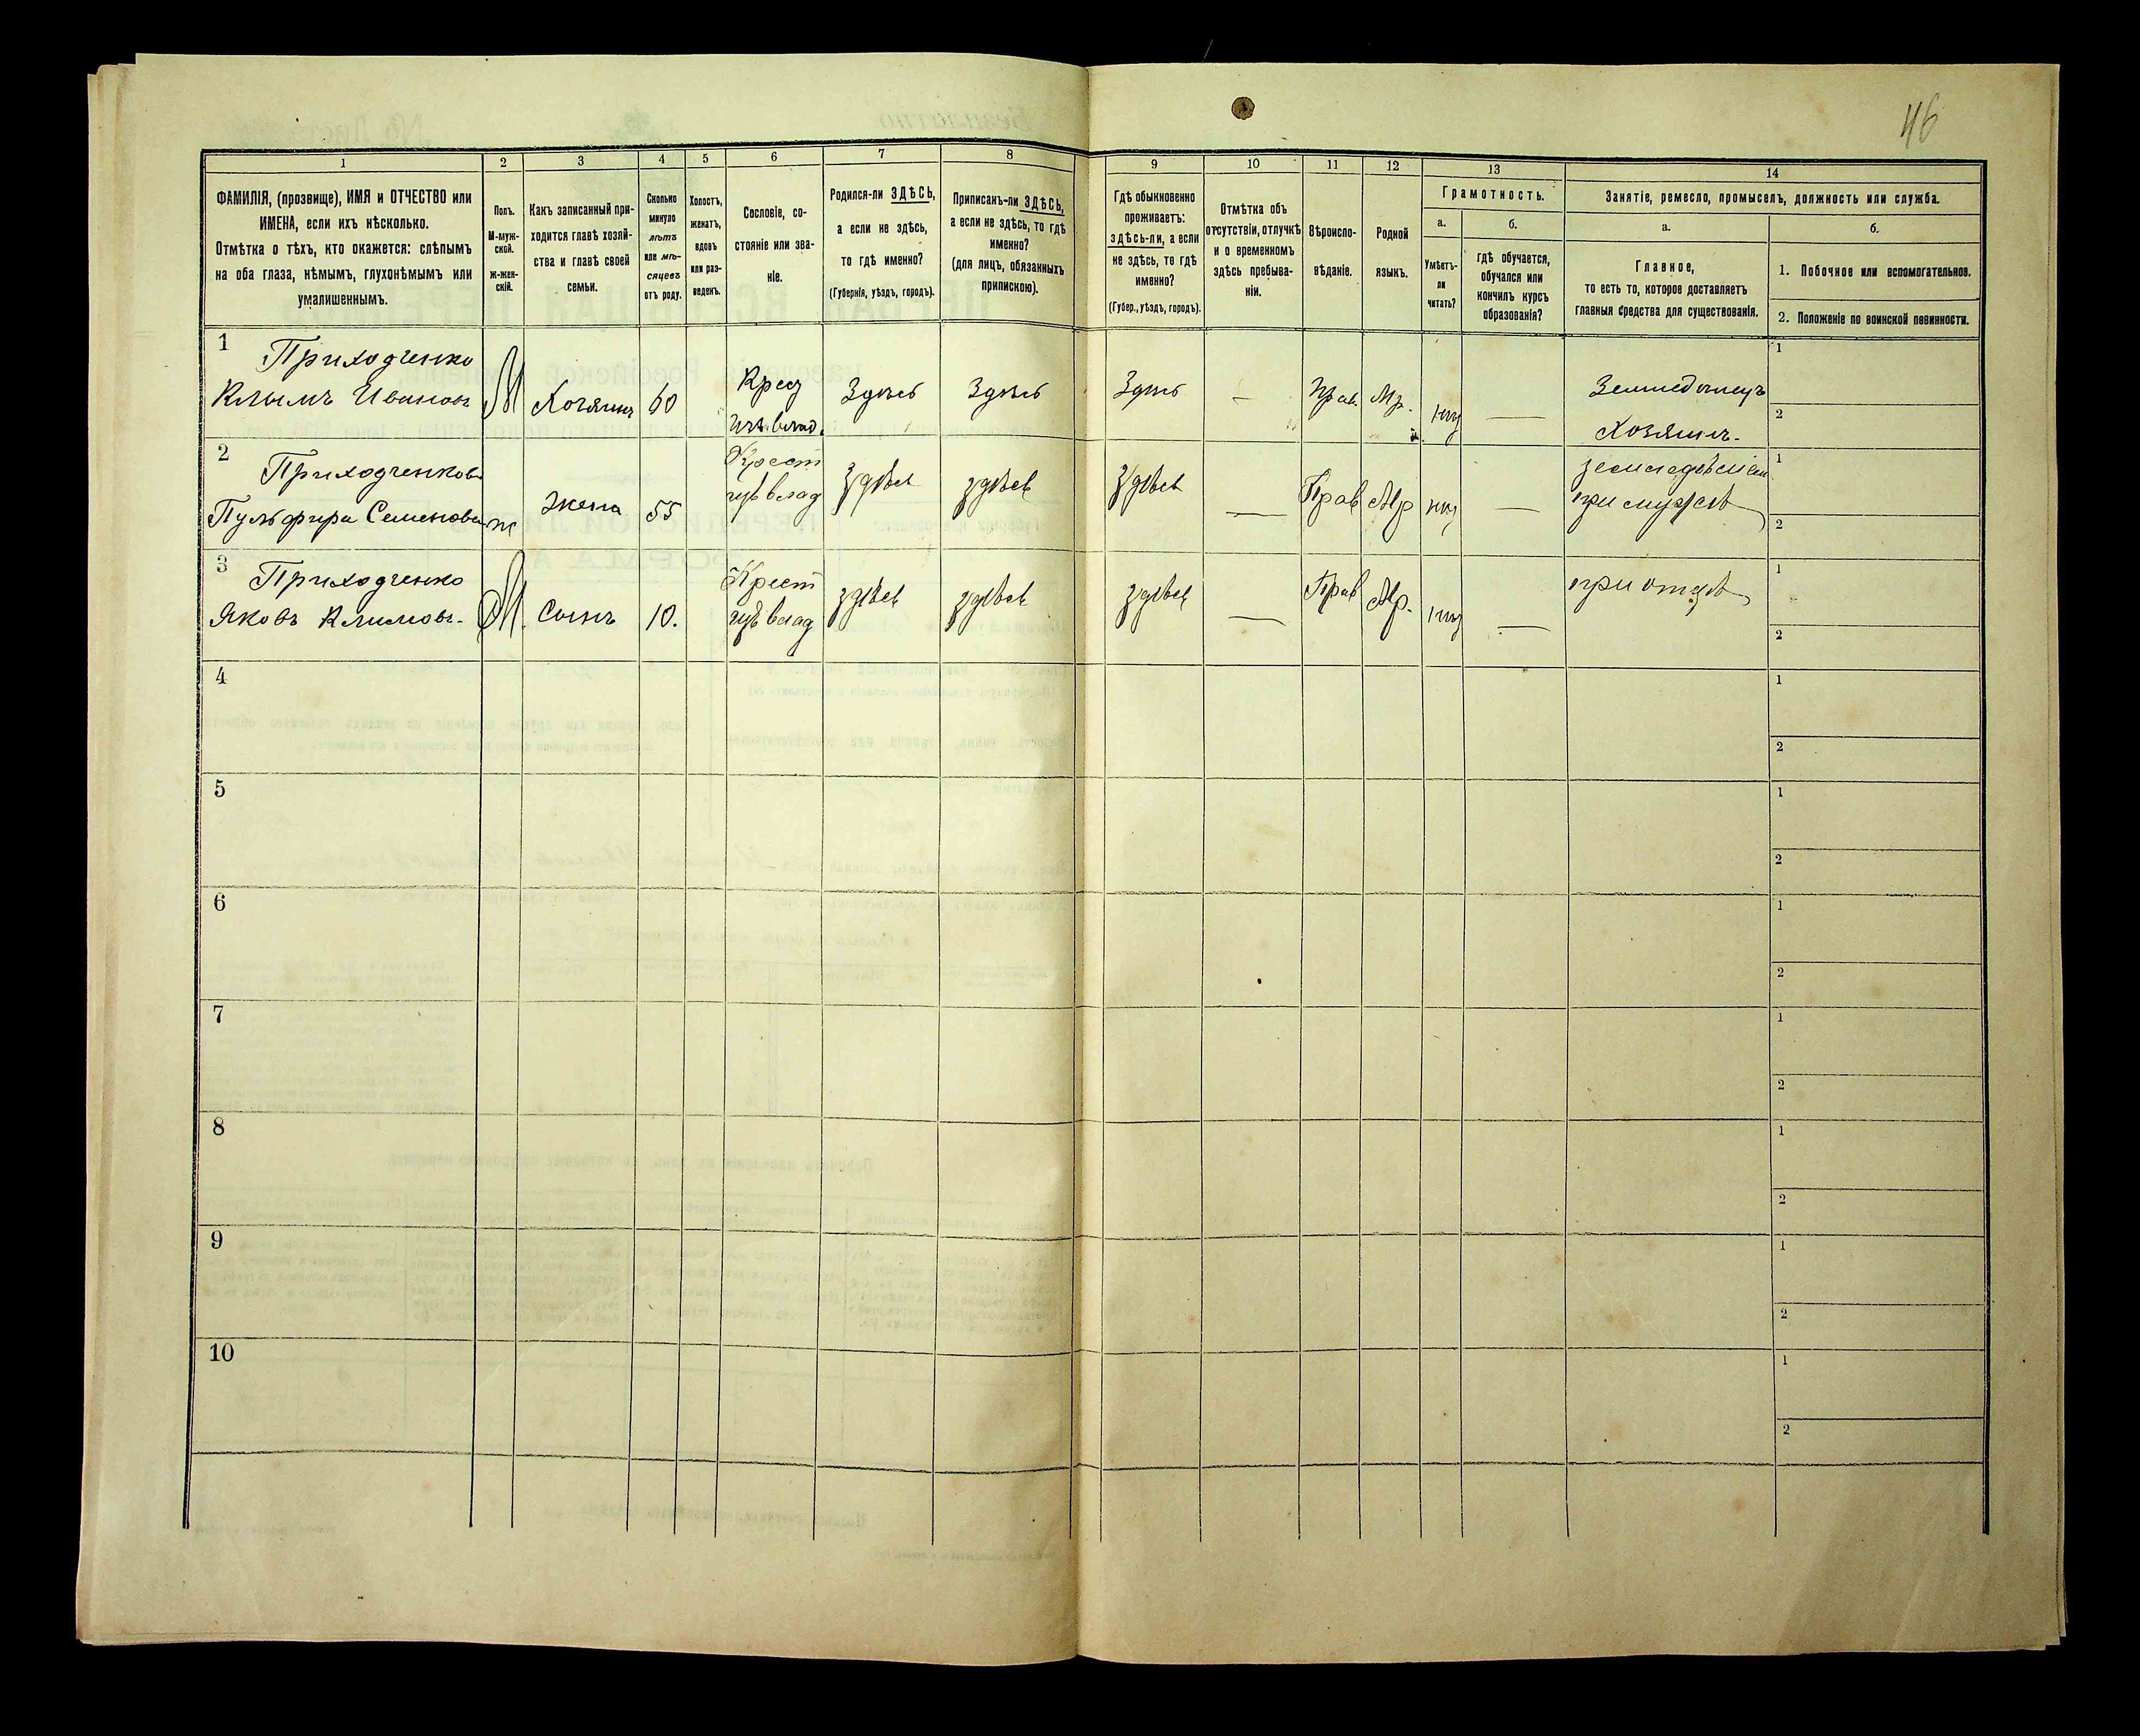 46
1
2
3
4
5
6
7
8
9
10
11
12
13
14
ФАМИЛІЯ, (прозвище), ИМЯ и ОТЧЕСТВО или
ИМЕНА, если ихъ нѣсколько.
Отмѣтка о тѣхъ, кто окажется: слѣпымъ
на оба глаза, нѣмымъ, глухонѣмымъ или
умалишеннымъ.
Полъ.
М-муж-
ской.
ж-жен-
скій.
Какъ записанный при-
ходится главѣ хозяй-
ства и главѣ своей
семьи.
Сколько
минуло
лѣтъ
или мѣ-
сяцевъ
отъ роду.
Холостъ,
женатъ,
вдовъ
или раз-
веденъ.
Сословіе, со-
стояніе или зва-
ніе.
Родился-ли ЗДѢСЬ,
а если не здѣсь,
то гдѣ именно?
(Губернія, уѣздъ, городъ).
Приписанъ-ли ЗДѢСЬ,
а если не здѣсь, то гдѣ
именно?
(для лицъ, обязанныхъ
припискою).
Гдѣ обыкновенно
проживаетъ:
здѣсь-ли, а если
не здѣсь, то гдѣ
именно?
(Губер., уѣздъ, городъ).
Отмѣтка объ
отсутствіи, отлучкѣ
и о временномъ
здѣсь пребыва-
ніи.
Вѣроиспо-
вѣданіе.
Родной
языкъ.
Грамотность.
а.
Умѣетъ-
ли
читать?
б.
гдѣ обучается,
обучался или
кончилъ курсъ
образованія?
Занятіе, ремесло, промыселъ, должность или служба.
а.
Главное,
то есть то, которое доставляетъ
главныя средства для существованія.
б.
1. Побочное или вспомогательное.
2. Положеніе по воинской повинности.
1
Приходченко
Климъ Ивановъ
М
Хозяинъ
60
Крест
изъ влад.
Здѣсь
Здѣсь
Здѣсь
—
Прав.
Мр.
нѣт
—
Земледѣлецъ
Хозяинъ.
1
2
2
Приходченкова
Семенова
ж
жена
55
Крест
изъ влад
здѣсь
здѣсь
здѣсь
—
Прав
Мр
нѣт
—
при мужѣ
1
2
3
Приходченко
Яковъ Климовъ.
М.
Сынъ
10.
Крест
изъ влад
здѣсь
здѣсь
здѣсь
—
Прав
Мр.
нѣт
—
при отцѣ
1
2
4
1
2
5
1
2
6
1
2
7
1
2
8
1
2
9
1
2
10
1
2